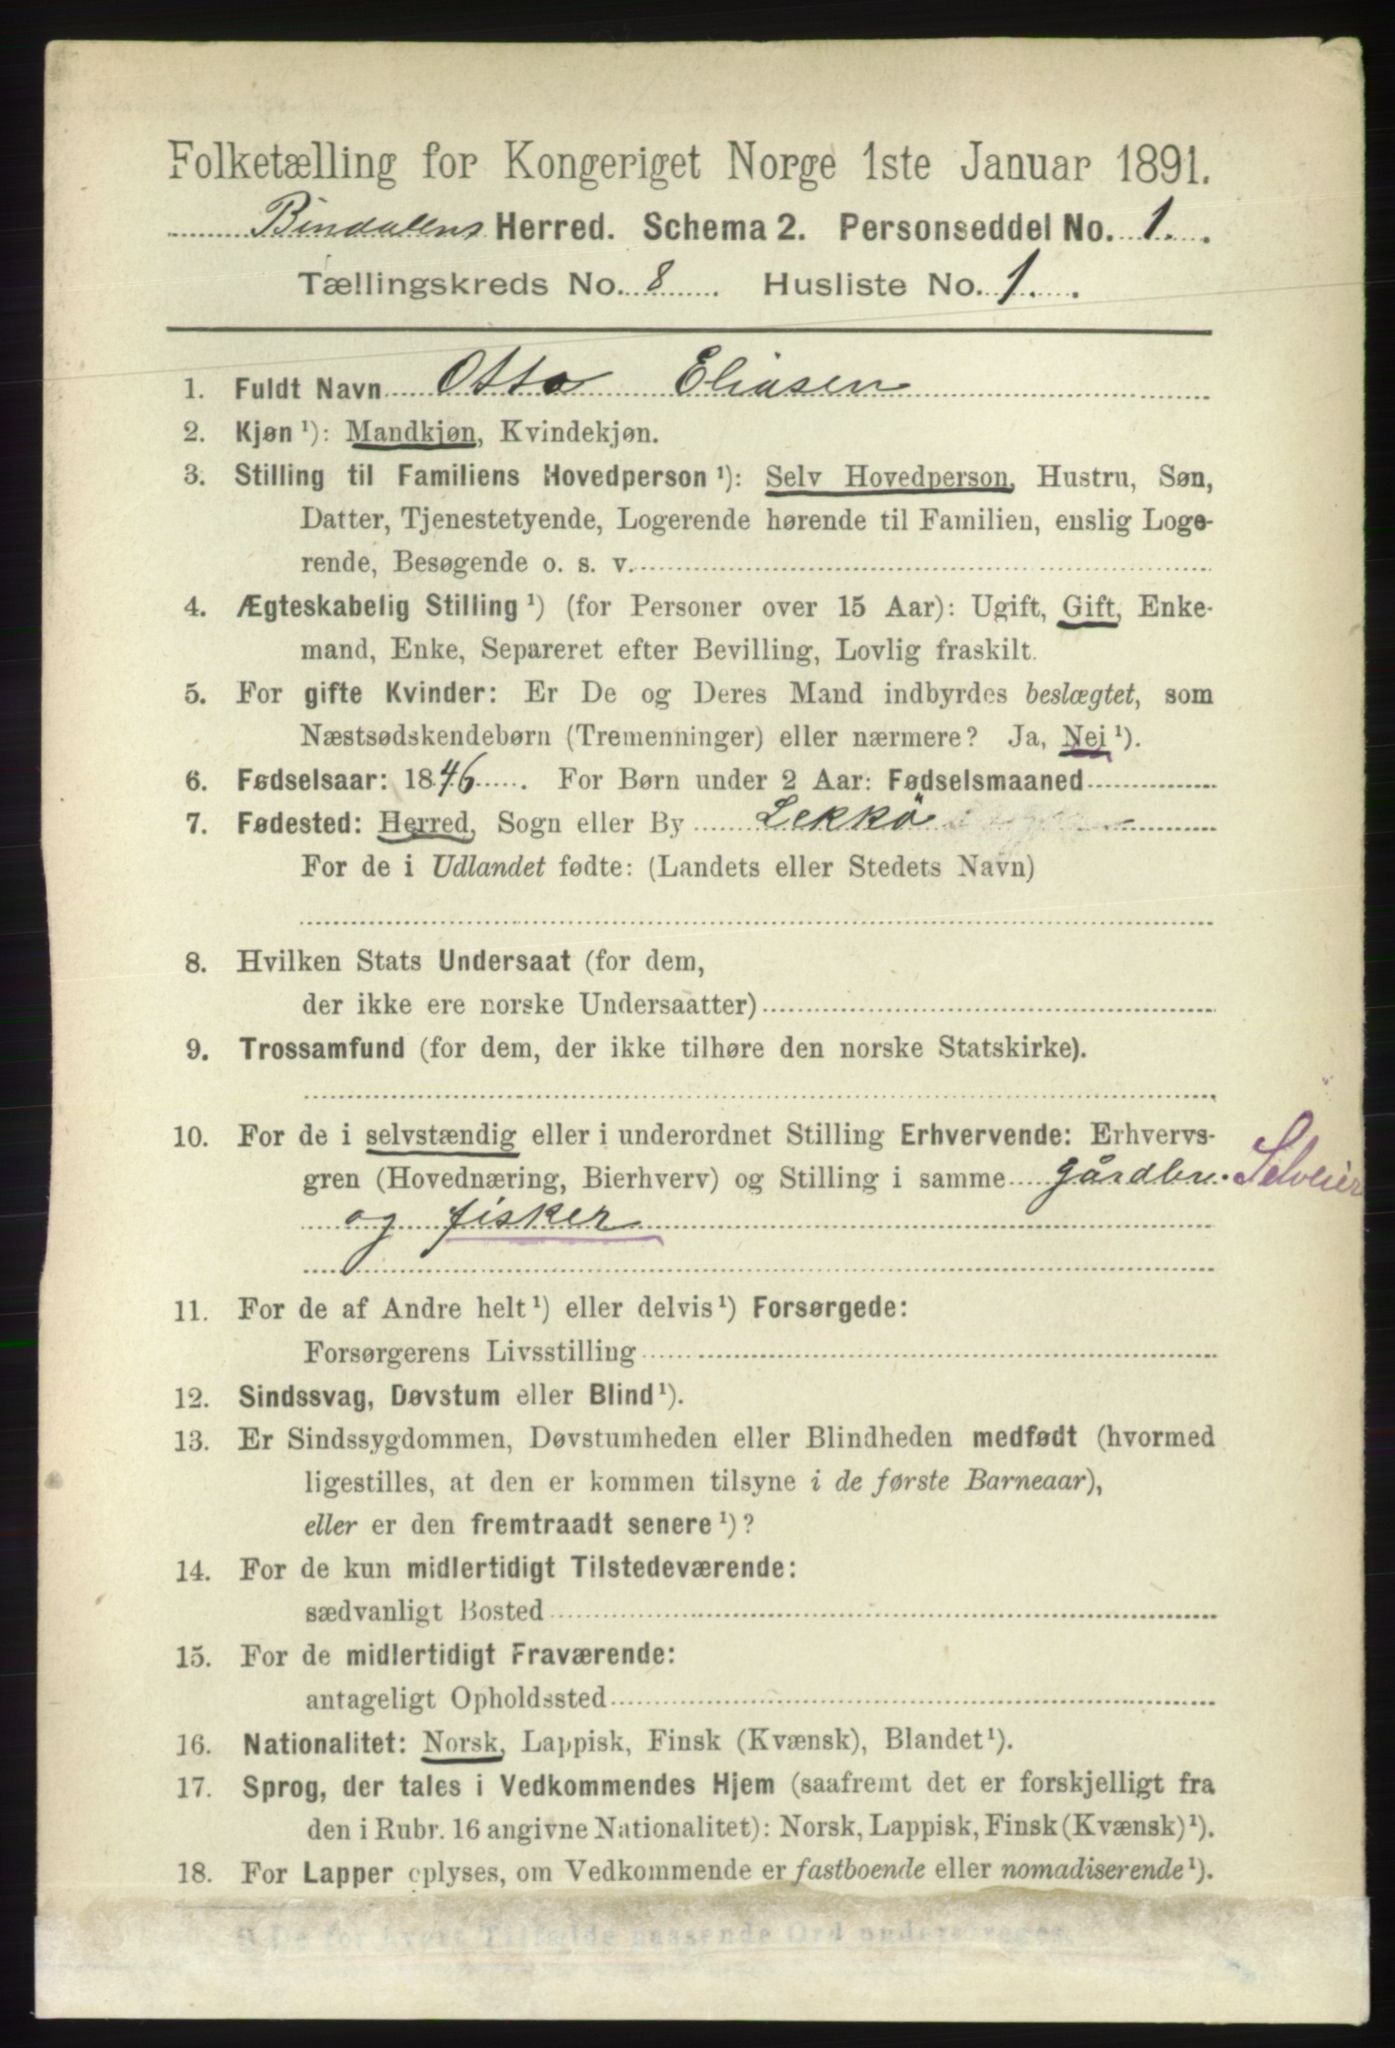 Folketælling for Kongeriget Norge 1ste Januar 1891.
Bindalens Herred. Schema 2. Personseddel No. 1.
Tællingskreds No. 8 Husliste No. 1.
1. Fuldt Navn Otto Eliasen
2. Kjøn ¹): Mandkjøn, Kvindekjøn.
3. Stilling til Familiens Hovedperson ¹): Selv Hovedperson, Hustru, Søn,
Datter, Tjenestetyende, Logerende hørende til Familien, enslig Loge-
rende, Besøgende o. s. v.
4. Ægteskabelig Stilling ¹) (for Personer over 15 Aar): Ugift, Gift, Enke-
mand, Enke, Separeret efter Bevilling, Lovlig fraskilt.
5. For gifte Kvinder: Er De og Deres Mand indbyrdes beslægtet, som
Næstsødskendebørn (Tremenninger) eller nærmere? Ja, Nej ¹).
6. Fødselsaar: 1846. For Børn under 2 Aar: Fødselsmaaned
7. Fødested: Herred, Sogn eller By Lekkö
For de i Udlandet fødte: (Landets eller Stedets Navn)
8. Hvilken Stats Undersaat (for dem,
der ikke ere norske Undersaatter)
9. Trossamfund (for dem, der ikke tilhøre den norske Statskirke).
10. For de i selvstændig eller i underordnet Stilling Erhvervende: Erhvervs-
gren (Hovednæring, Bierhverv) og Stilling i samme gårdbr. Selveier
og fisker
11. For de af Andre helt ¹) eller delvis ¹) Forsørgede:
Forsørgerens Livsstilling
12. Sindssvag, Døvstum eller Blind ¹).
13. Er Sindssygdommen, Døvstumheden eller Blindheden medfødt (hvormed
ligestilles, at den er kommen tilsyne i de første Barneaar),
eller er den fremtraadt senere ¹)?
14. For de kun midlertidigt Tilstedeværende:
sædvanligt Bosted
15. For de midlertidigt Fraværende:
antageligt Opholdssted
16. Nationalitet: Norsk, Lappisk, Finsk (Kvænsk), Blandet ¹).
17. Sprog, der tales i Vedkommendes Hjem (saafremt det er forskjelligt fra
den i Rubr. 16 angivne Nationalitet): Norsk, Lappisk, Finsk (Kvænsk) ¹).
18. For Lapper oplyses, om Vedkommende er fastboende eller nomadiserende ¹).
¹) De for hvert Tilfælde passende Ord understreges.